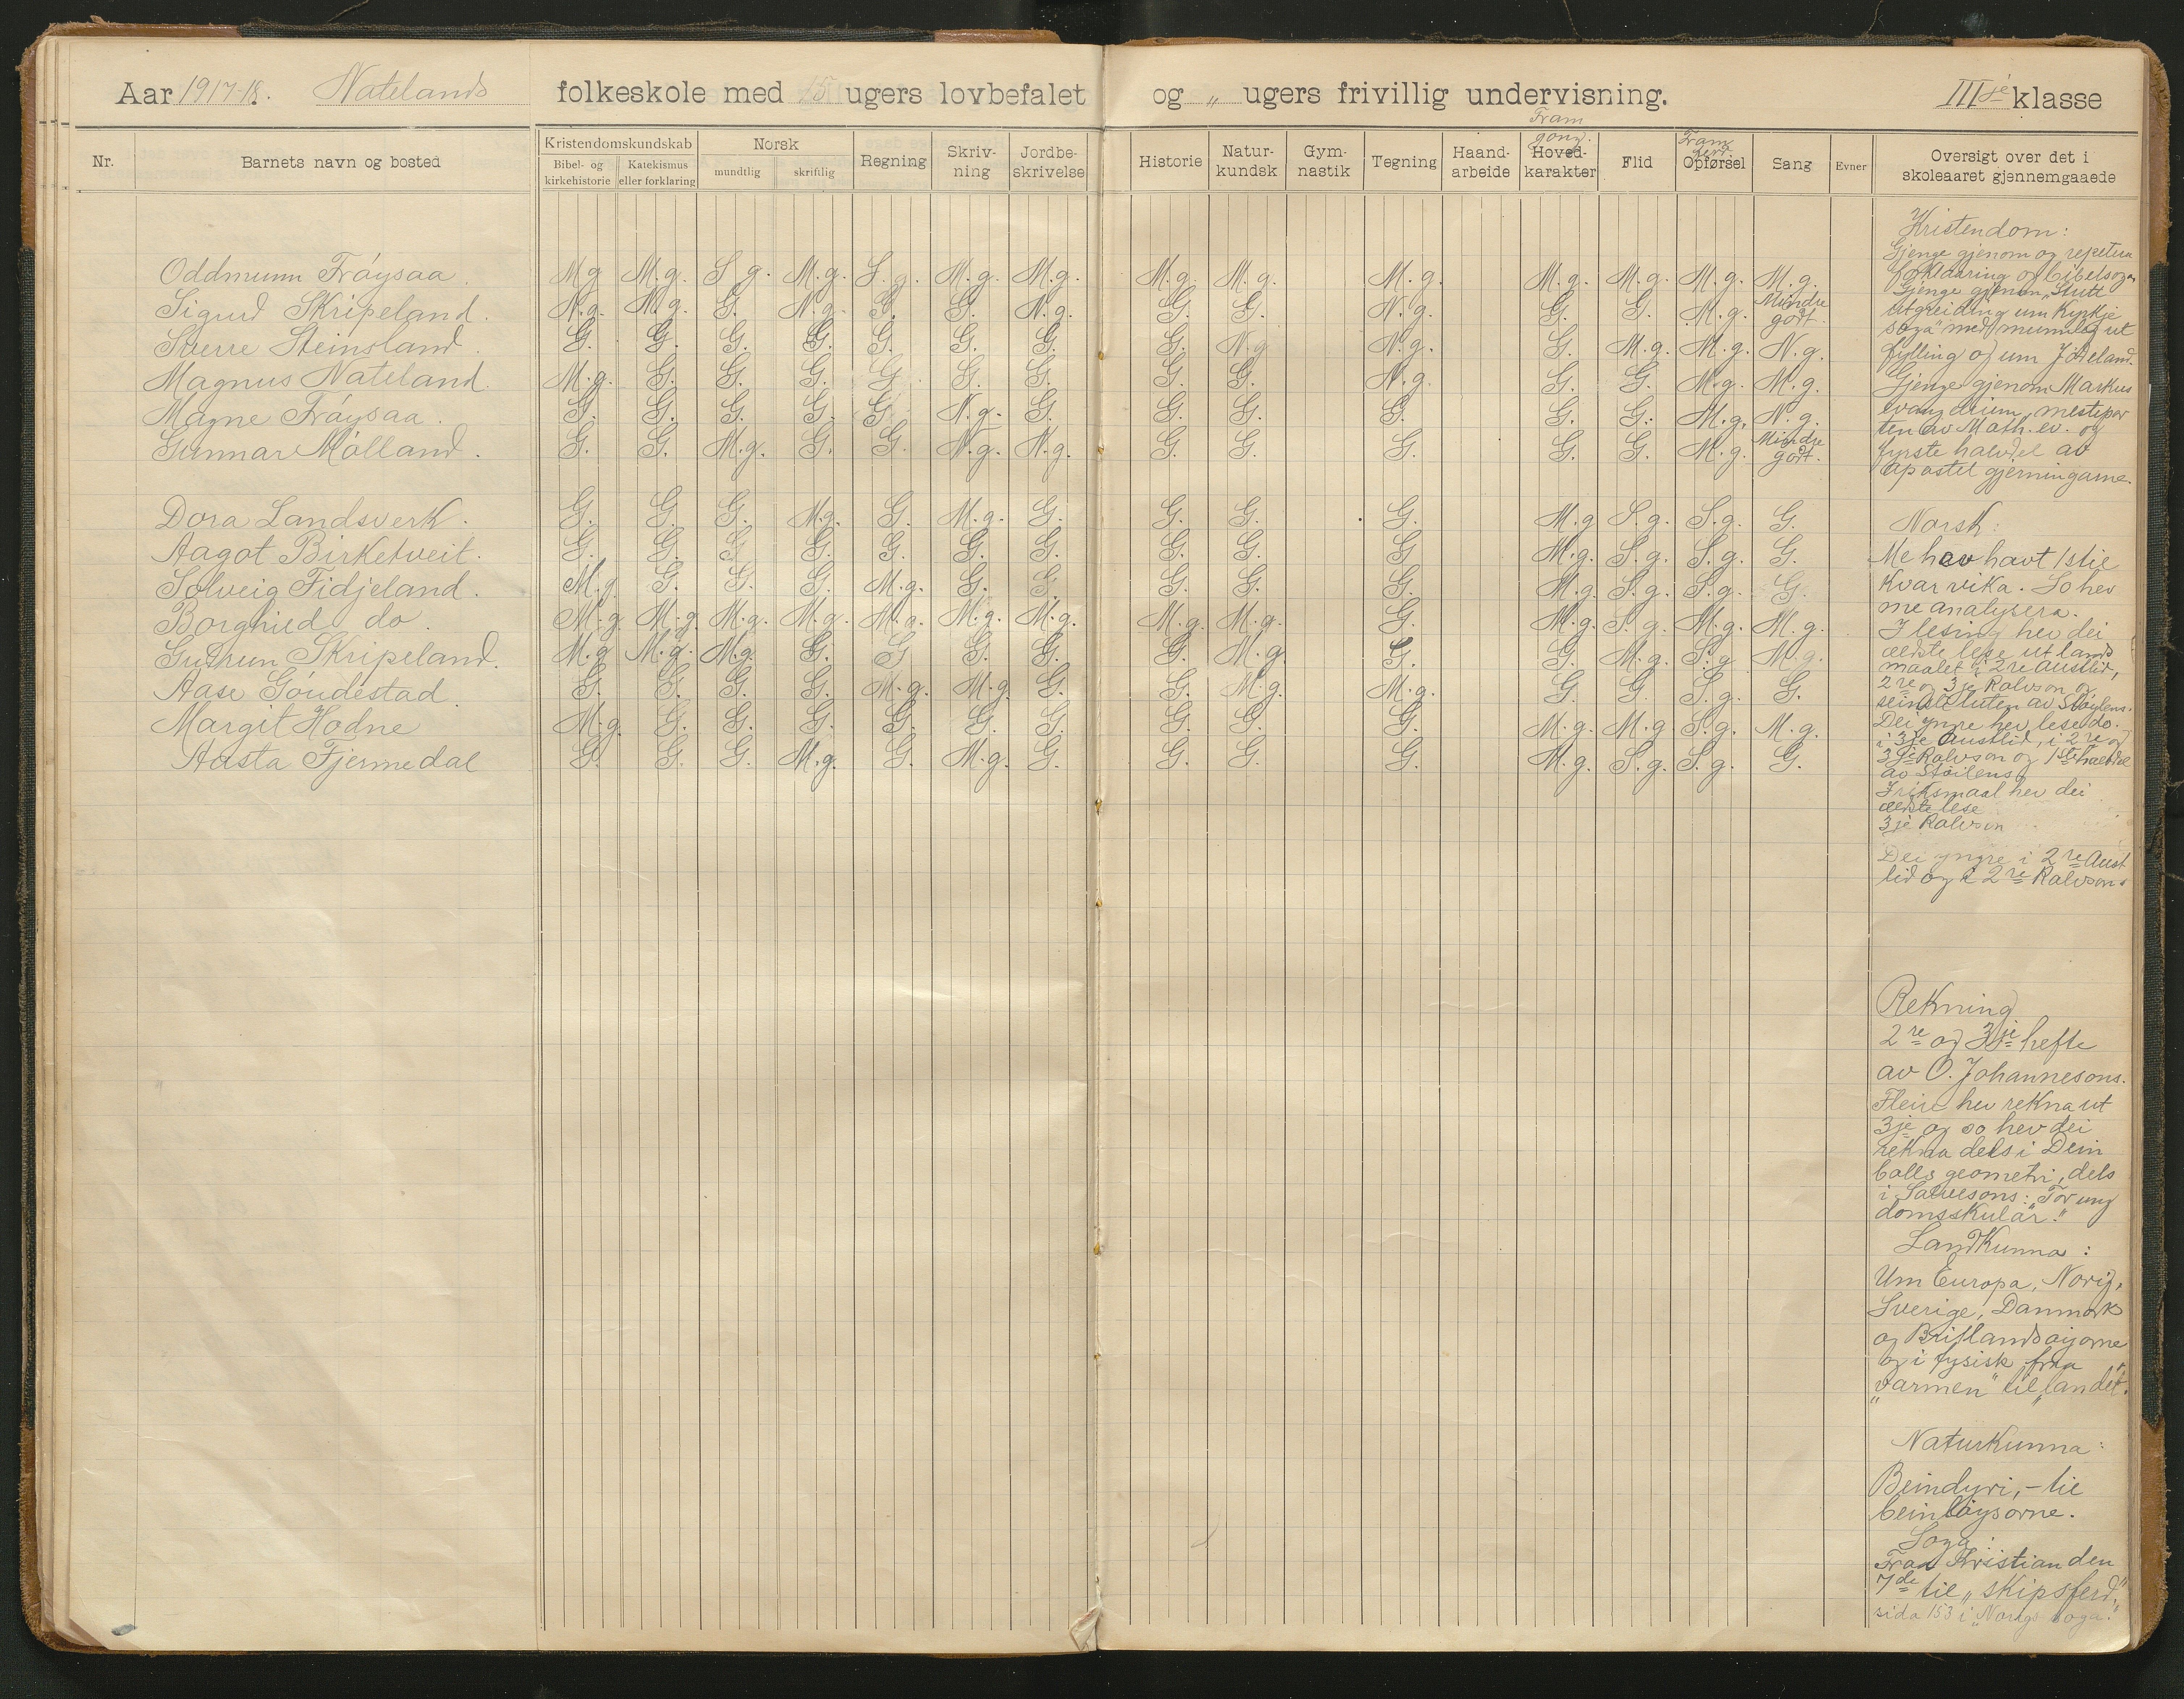 Aar 1917-18. Natelands folkeskole med 15 ugers lovbefalet og " ugers frivillig undervisning. III je klasse
Nr. Barnets navn og bosted Kristendomskundskab Norsk Regning Skriv-ning Jordbe-skrivelse Historie Natur-kundsk Gym-nastik Tegning Haand-arbeide Hoved-karakter Flid Opførsel Sang Evner Oversigt over det i skoleaaret gjennemgaaede
Bibel- og kirkehistorie Katekismus eller forklaring mundtlig skriftlig
Fram gong. Fram ferd.
Oddmunn Frøysaa. M.g. M.g. S.g. M.g. S.g. M.g. M.g. M.g. M.g. M.g. M.g. M.g. M.g. M.g.
Sigurd Skripeland. N.g. N.g. G. N.g. G. G. N.g. G. G. N.g. G. G. M.g. Mindre godt.
Sverre Steinsland. G. G. G. G. G. G. G. G. N.g. N.g. G. M.g. M.g. N.g.
Magnus Nateland. M.g. G. G. G. G. G. G. G. G. N.g. G. G. M.g. M.g.
Magne Frøysaa. G. G. G. G. G. N.g. G. G. G. G. G. G. M.g. N.g.
Gunnar Mølland. G. G. M.g. G. G. N.g. N.g. G. G. G. G. G. M.g. Mindre godt.
Dora Landsverk. G. G. G. M.g. G. M.g. G. G. G. G. M.g. S.g. S.g. G.
Aagot Birketveit. G. G. G. G. G. G. G. G. G. G. M.g. S.g. S.g. G.
Solveig Fidjeland. M.g. G. G. G. M.g. G. G. G. G. G. M.g. S.g. S.g. G.
Borghild do. M.g. M.g. M.g. M.g. M.g. M.g. M.g. M.g. M.g. G. M.g. S.g. M.g. M.g.
Gudrun Skripeland. M.g. M.g. M.g. G. G. G. G. G. M.g. G. G. M.g. S.g. M.g.
Aase Goudestad. G. G. G. G. M.g. M.g. G. G. M.g. M.g. G. G. S.g. G.
Margit Hodne M.g. G. G. G. G. G. G. G. G. G. M.g. M.g. S.g. M.g.
Aasta Fjermedal G. G. G. M.g. G. M.g. G. G. G. G. M.g. S.g. S.g. G.
Kristendom:
Gjenge gjenom og repetera
forklaaring og bibelsoga
Gjenge gjenom "Stutt
utgreiding um Kyrkje
soga" med munnleg ut
fylling og um
Gjenge gjenom Markus
evangelium, mesteper
ten av Math. ev. og
fyrste halvdel av
apostel gjerningarne.
Norsk:
Me hev havt 1 stil
kvar vika. So hev
me analysera.
I lesing hev dei
eldste lese ut lands
maalet i 2re Austlid,
2re og 3je Rolvson og
seinste luten av Støylens.
Dei yngre hev lese do.
i 3je Austlid, i 2re og
3je Rolvson og 1ste halvdel
av Støilens
I riksmaal hev dei
eldste lese
3je Rolvson
Dei yngre i 2re Aust
lid og i 2re Rolvson.
Rekning
2re og 3je hefte
av O. Johannesons.
Fleire hev rekna ut
3je og so hev dei
rekna dels i Dein
bolls geometri, dels
i Salvesons: "For ung
domsskular."
Landkunna:
Um Europa, Norig,
Sverige, Danmark
og Britlandsøyorne
og i fysisk fraa
"varmen" til "landet".
Naturkunna:
Beindyri, - til
beinløysorne.
Soga:
Fraa Kristian den
7de til "skipsferd,"
sida 153 i "Norigs soga."